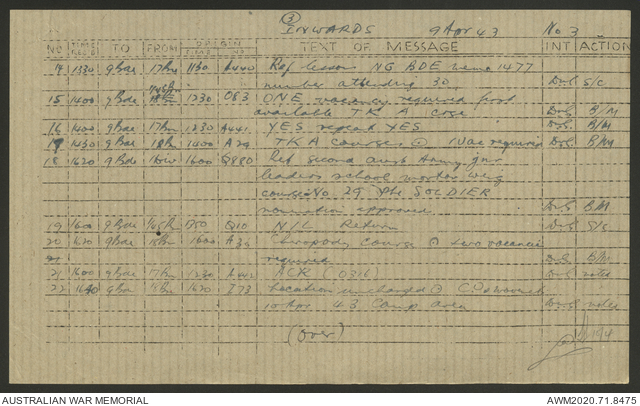 3
INWARDS 9 Apr 43 No 3
NO TIME REC'D TO FROM ORIGIN TEXT OF MESSAGE INT ACTION
14 1330 9 Bde 17 Bn 1130 A440 Ref lessons NG BDE memo 1477
number attending 30 S/C
15 1400 9 Bde 1230 O83 ONE vacancy required first
available TK A course B/M
16 1400 9 Bde 17 Bn 1230 A441 YES repeat YES B/M
17 1430 9 Bde 18 Bn 1400 A29 TKA courses 1 vac required B/M
18 1620 9 Bde 1600 Q880 Ref second aust Army jnr
leaders school wing
course No. 29 Pte SOLDIER
nomination approved B/M
19 1600 9 Bde Q10 NIL Return S/C
20 1620 9 Bde 1600 A30 course two vacancies
required B/M
21 1600 9 Bde 17 Bn 1230 A442 ACK (0316) noted
22 1640 9 Bde 1620 I73 Location unchanged
10 Apr 43 Camp area noted
(over)
AUSTRALIAN WAR MEMORIAL AWM2020.71.8475